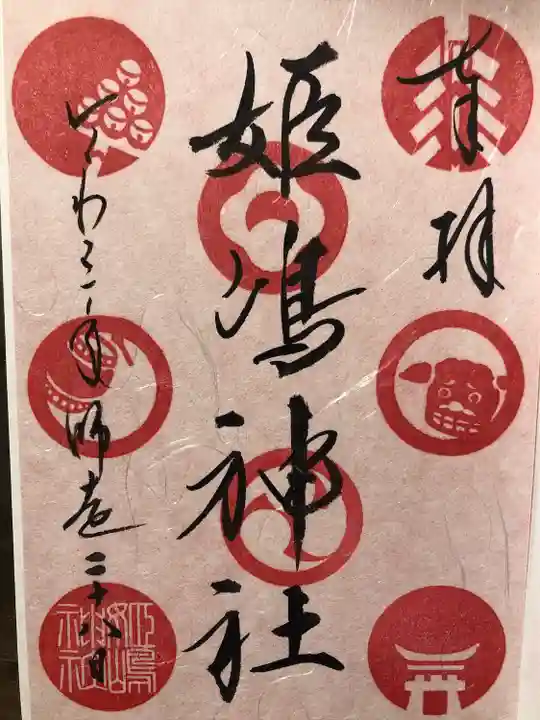 奉拝
姫嶋神社
わ年師走二十八日
姫嶋神社